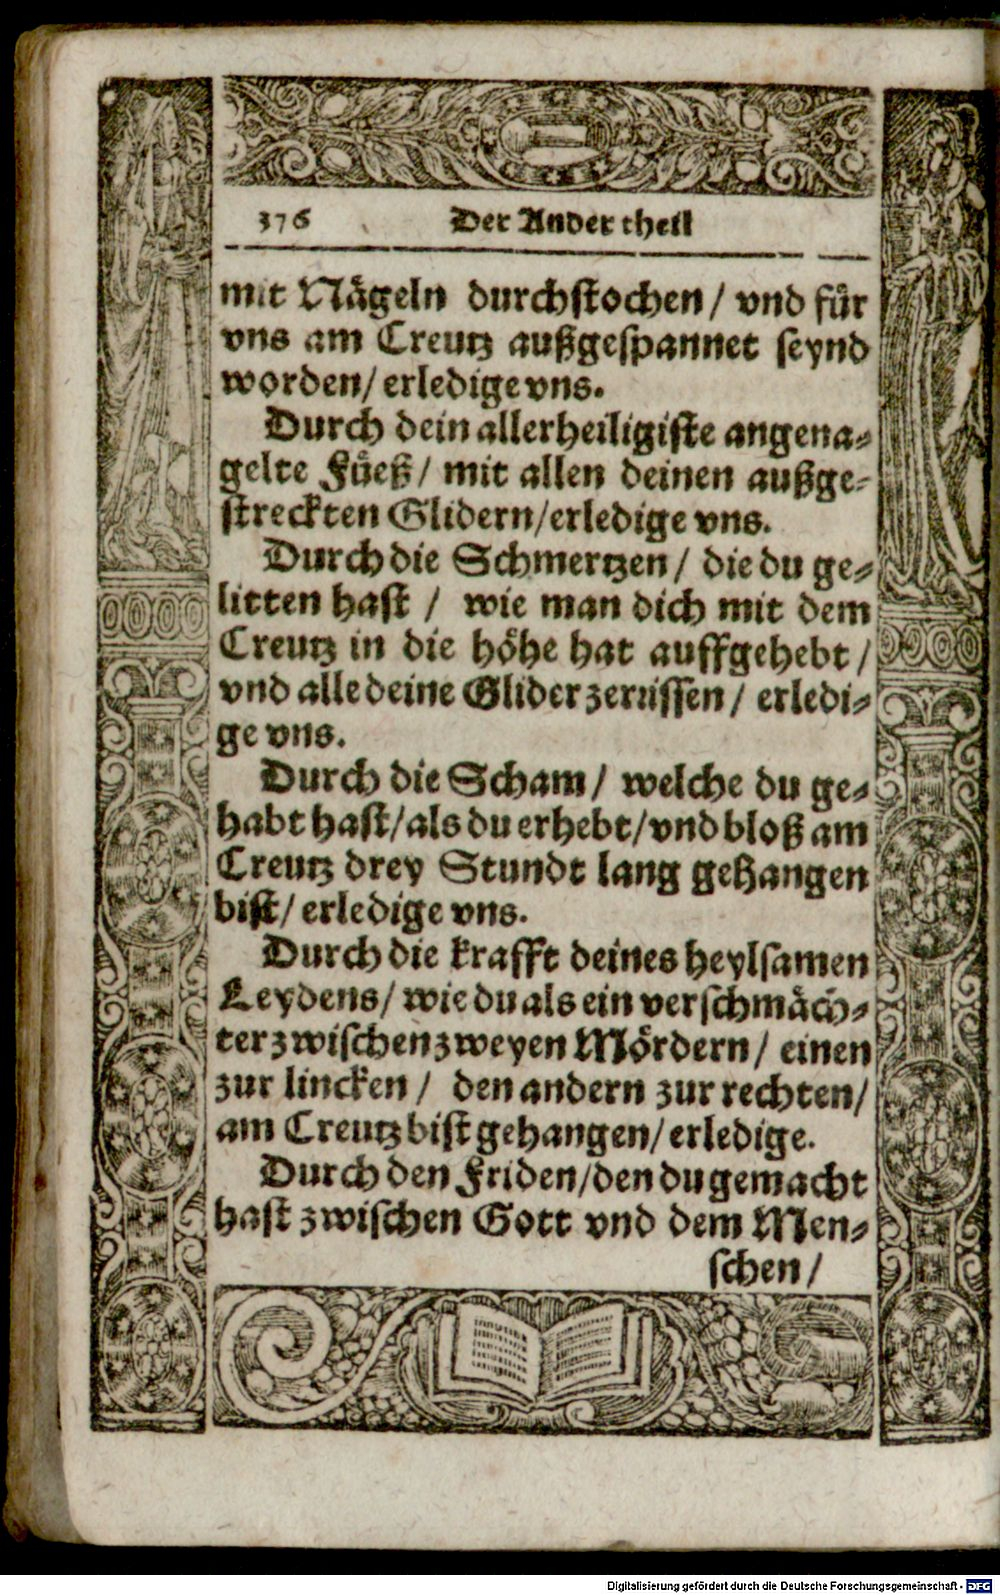 376 Der Ander theil
mit Nägeln durchstochen / vnd für
vns am Creutz außgespannet seynd
worden / erledige vns.
Durch dein allerheiligiste angena-
gelte Füeß / mit allen deinen außge-
streckten Glidern / erledige vns.
Durch die Schmertzen / die du ge-
litten hast / wie man dich mit dem
Creutz in die höhe hat auffgehebt /
vnd alle deine Glider zerrissen / erledi-
ge vns.
Durch die Scham / welche du ge-
habt hast / als du erhebt / vnd bloß am
Creutz drey Stundt lang gehangen
bist / erledige vns.
Durch die krafft deines heylsamen
Leydens / wie du als ein verschmäch-
ter zwischen zweyen Mördern / einen
zur lincken / den andern zur rechten /
am Creutz bist gehangen / erledige.
Durch den Friden / den du gemacht
hast zwischen Gott vnd dem Men-
schen /
Digitalisierung gefördert durch die Deutsche Forschungsgemeinschaft - DFG